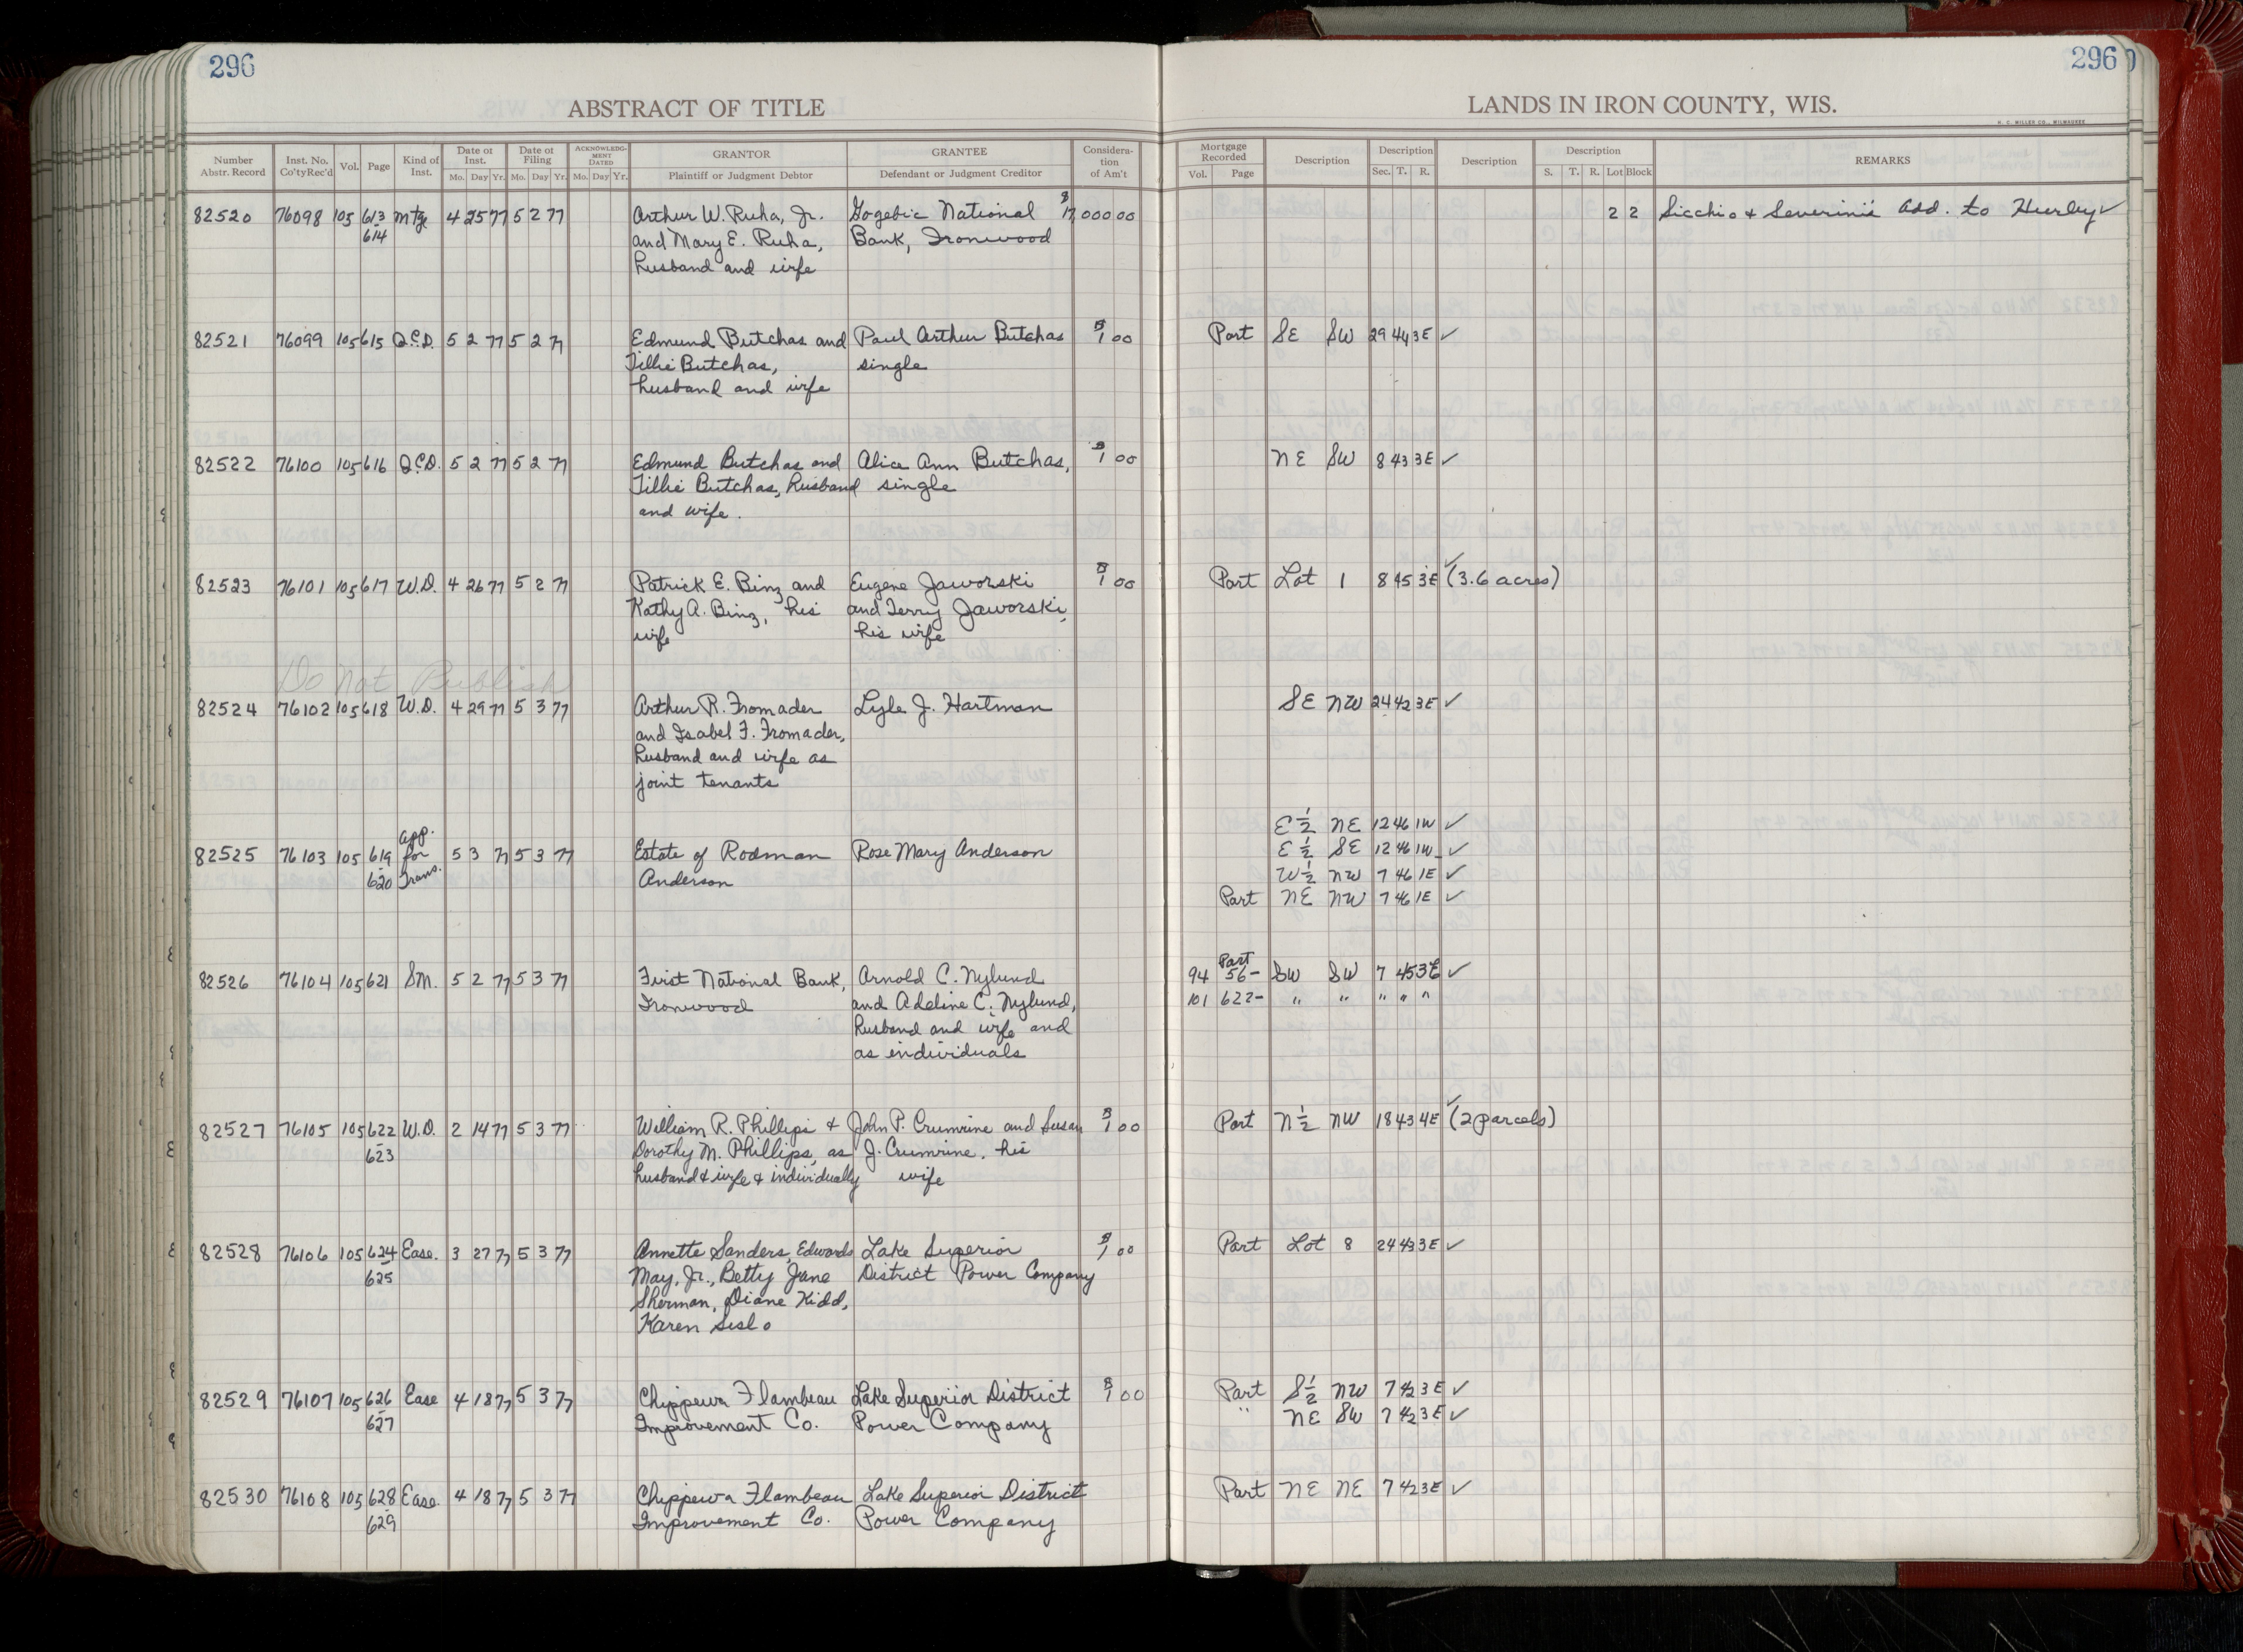 296
296
ABSTRACT OF TITLE
LANDS IN IRON COUNTY, WIS.
H. C. MILLER CO., MILWAUKEE
Number Abstr. Record | Inst. No. Co'ty Rec'd | Vol. | Page | Kind of Inst. | Date of Inst. Mo. Day Yr. | Date of Filing Mo. Day Yr. | ACKNOWLEDGMENT DATED Mo. Day Yr. | GRANTOR Plaintiff or Judgment Debtor | GRANTEE Defendant or Judgment Creditor | Consideration of Am't | Mortgage Recorded Vol. Page | Description | Description Sec. T. R. | Description | Description S. T. R. Lot Block | REMARKS
82520 76098 105 613 Mtge 4 25 77 5 2 77 Arthur W. Ruha, Jr. Gogebic National $17,000 00 2 2 Sicchio & Severini's Add. to Hurley ✓
614 and Mary E. Ruha, Bank, Ironwood
husband and wife
82521 76099 105 615 Q.C.D. 5 2 77 5 2 77 Edmund Butchas and Paul Arthur Butchas $1 00 Part SE SW 29 44 3E ✓
Tillie Butchas, single
husband and wife
82522 76100 105 616 Q.C.D. 5 2 77 5 2 77 Edmund Butchas and Alice Ann Butchas, $1 00 NE SW 8 43 3E ✓
Tillie Butchas, husband single
and wife.
82523 76101 105 617 W.D. 4 26 77 5 2 77 Patrick E. Binz and Eugene Jaworski $1 00 Part Lot 1 8 45 3E ✓ (3.6 acres)
Kathy A. Binz, his and Terry Jaworski,
wife his wife
Do Not Publish
82524 76102 105 618 W.D. 4 29 77 5 3 77 Arthur R. Fromader Lyle J. Hartman SE NW 24 42 3E ✓
and Isabel F. Fromader,
husband and wife as
joint tenants
E 1/2 NE 12 46 1W ✓
82525 76103 105 619 App. for Trans. 5 3 77 5 3 77 Estate of Rodman Rose Mary Anderson E 1/2 SE 12 46 1W ✓
620 Anderson W 1/2 NW 7 46 1E ✓
Part NE NW 7 46 1E ✓
82526 76104 105 621 SM. 5 2 77 5 3 77 First National Bank, Arnold C. Nylund 94 56- Part SW SW 7 45 3E ✓
Ironwood and Adeline C. Nylund, 101 622- " " " " "
husband and wife and
as individuals
82527 76105 105 622 W.D. 2 14 77 5 3 77 William R. Phillips & John P. Crumrine and Susan $1 00 Part N 1/2 NW 18 43 4E ✓ (2 parcels)
623 Dorothy M. Phillips, as J. Crumrine, his
husband & wife & individually wife
82528 76106 105 624 Ease. 3 27 77 5 3 77 Annette Sanders, Edwards Lake Superior $1 00 Part Lot 8 24 43 3E ✓
625 May, Jr., Betty Jane District Power Company
Sherman, Diane Kidd,
Karen Sislo
82529 76107 105 626 Ease 4 18 77 5 3 77 Chippewa Flambeau Lake Superior District $1 00 Part S 1/2 NW 7 42 3E ✓
627 Improvement Co. Power Company " NE SW 7 42 3E ✓
82530 76108 105 628 Ease. 4 18 77 5 3 77 Chippewa Flambeau Lake Superior District Part NE NE 7 42 3E ✓
629 Improvement Co. Power Company